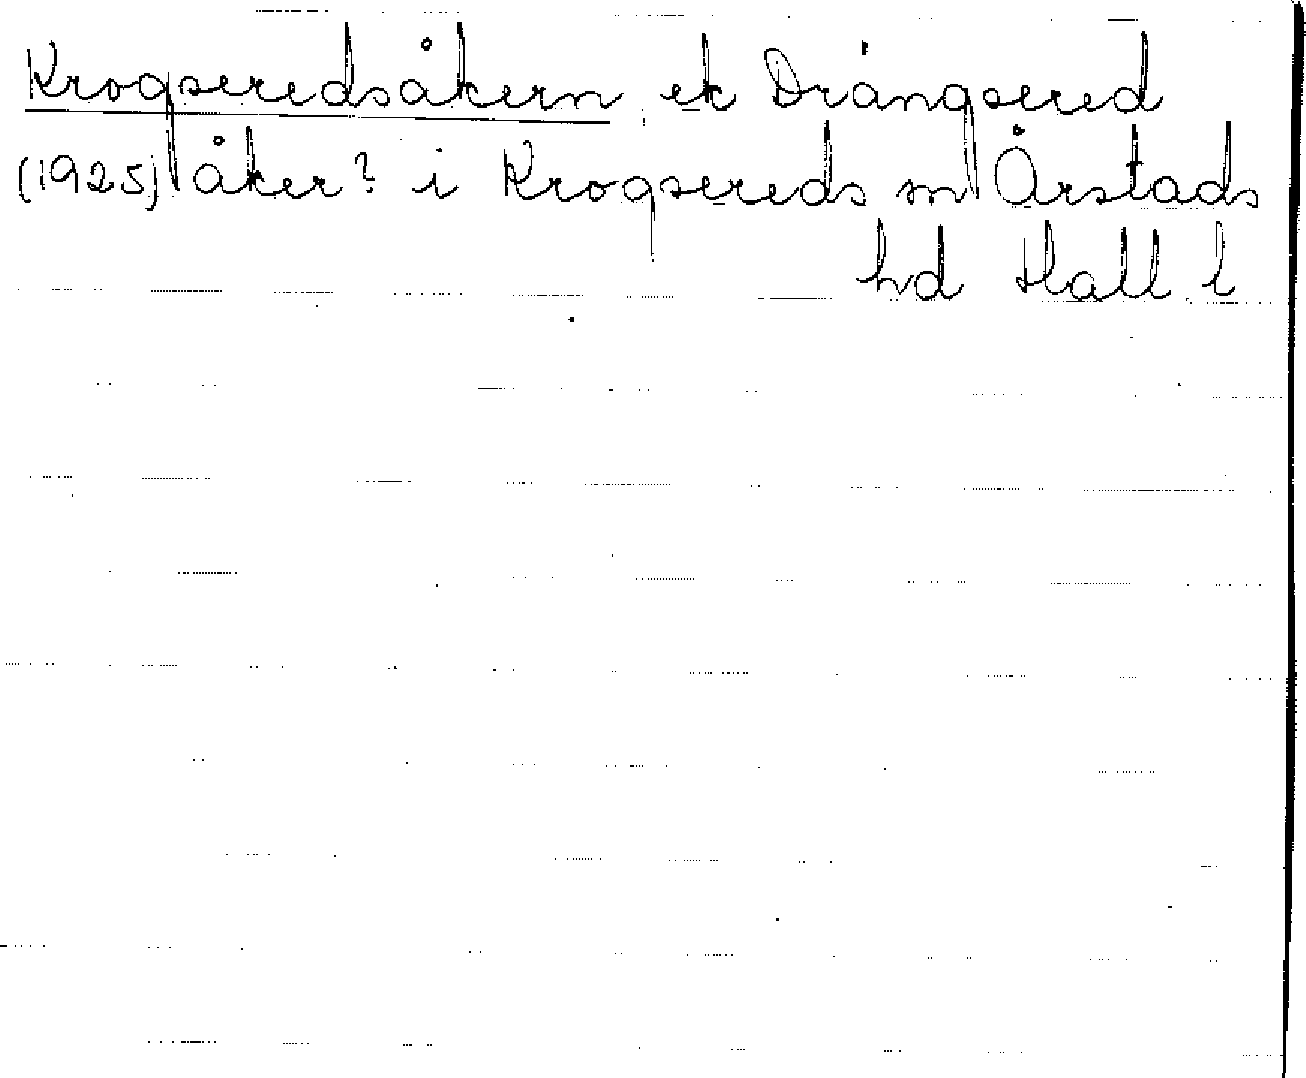 Krogseredsåkern ek Drängsered
(1925) åker? i Krogsereds sn Årstads
hd Hall l